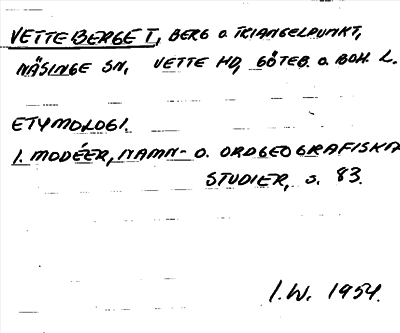 VETTEBERGET, BERG O. TRIANGELPUNKT,
NÄSINGE SN, VETTE HD, GÖTEB. O. BOH. L.
ETYMOLOGI.
I. MODÉER, NAMN- O. ORDGEOGRAFISKA
STUDIER, s. 83.
I.W. 1954.